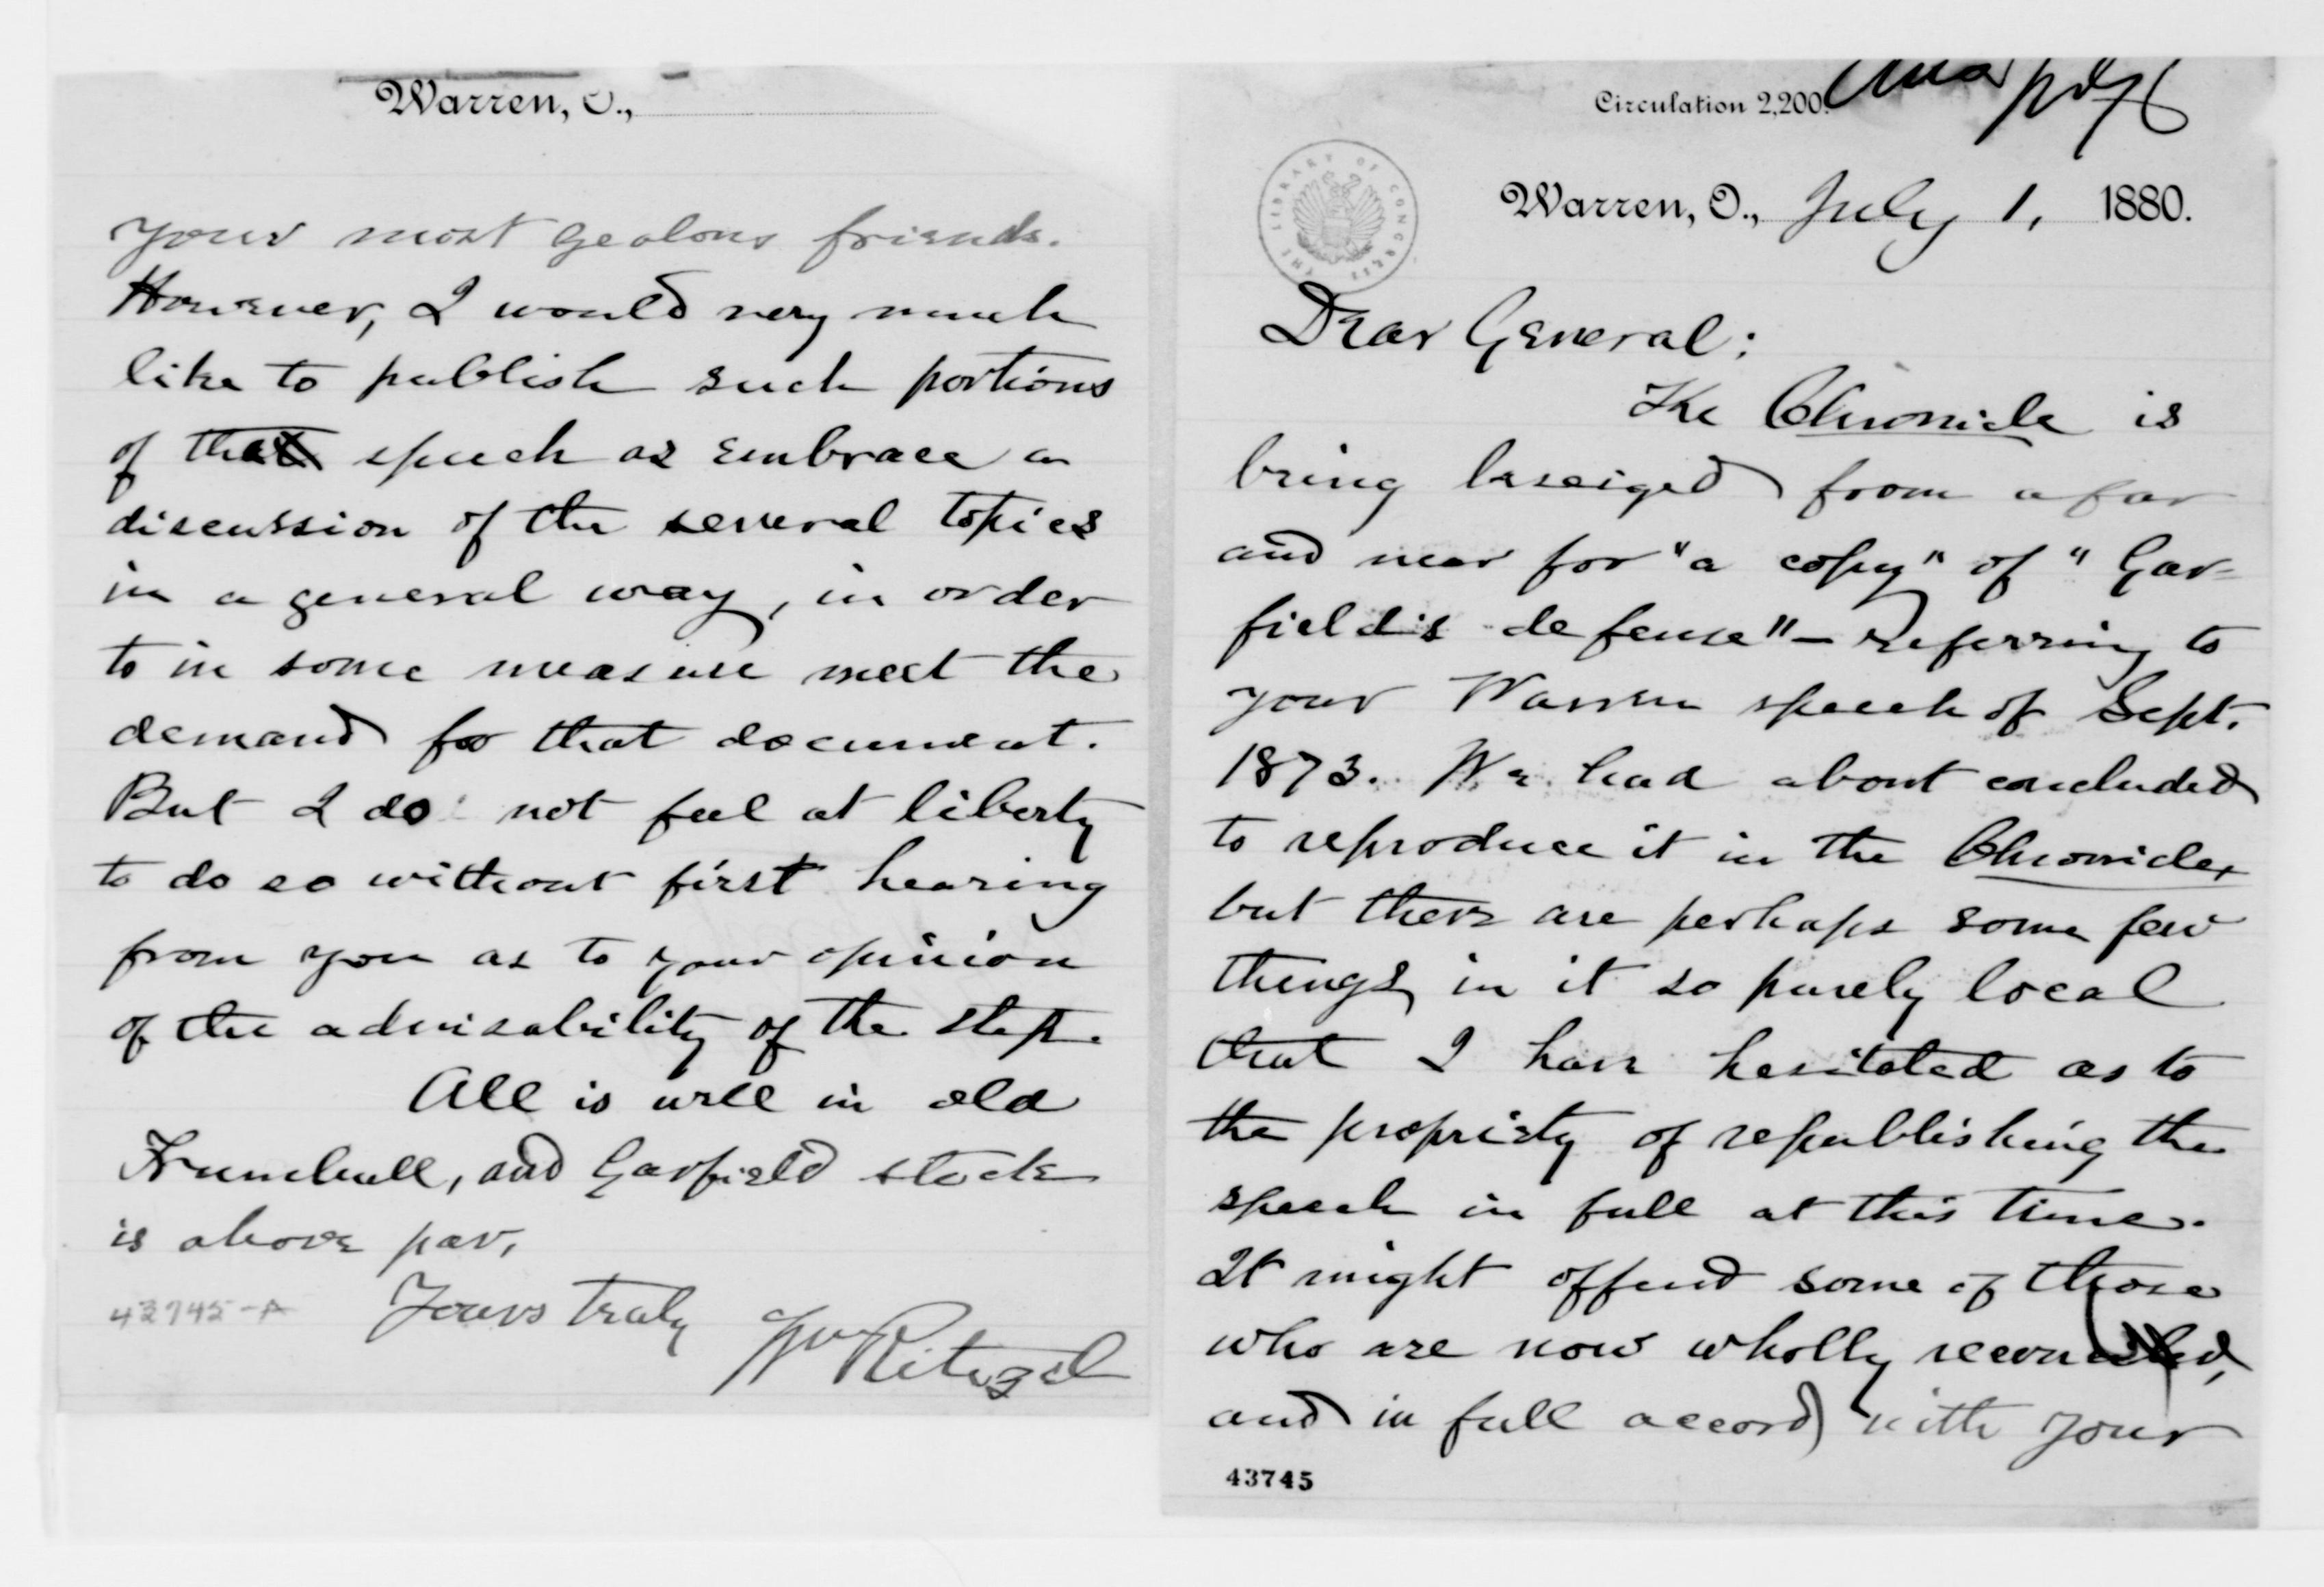 Circulation 2,200.
Warren, O., July 1, 1880.
THE LIBRARY OF CONGRESS
Dear General:
The Chronicle is
being beseiged from afar
and near for "a copy" of "Gar-
field's defense" — referring to
your Warren speech of Sept.
1873. We had about concluded
to reproduce it in the Chronicle,
but there are perhaps some few
things in it so purely local
that I have hesitated as to
the propriety of republishing the
speech in full at this time.
It might offend some of those
who are now wholly reconciled,
and in full accord with your
43745
Warren, O.,
your most zealous friends.
However, I would very much
like to publish such portions
of the speech as embrace a
discussion of the several topics
in a general way, in order
to in some measure meet the
demand for that document.
But I do not feel at liberty
to do so without first hearing
from you as to your opinion
of the advisability of the step.
All is well in old
Trumbull, and Garfield stock
is above par,
Yours truly
Wm Ritezel
43745-A